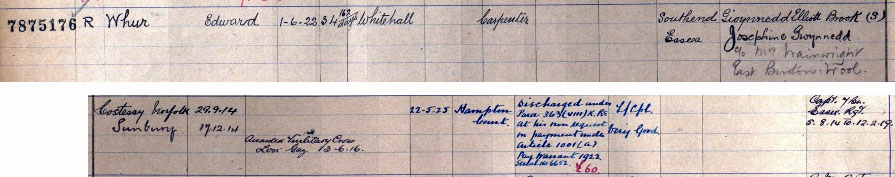 7875176 R Whur Edward 1-6-22 34 163 days Whitehall Carpenter Southend Gwynnedd Elliott Brook (S)
Essex Josephine Gwynnedd
c/o Mrs Wainwright
East Burton, Wool.
Costessy Norfolk 29.9.14 22-5-25 Hampton Discharged under T/Cpl. Capt. 7 Bn.
Sunbury 17.12.14 Court Para 363 (VIII) K.Rs Essex Rgt.
at his own request Very Good 5.8.14 to 12.2.19.
Awarded Military Cross on payment under
Lon: Gaz. 3-6-16. Article 1001 (a)
Pay Warrant 1922
Serial No 6652.
£60